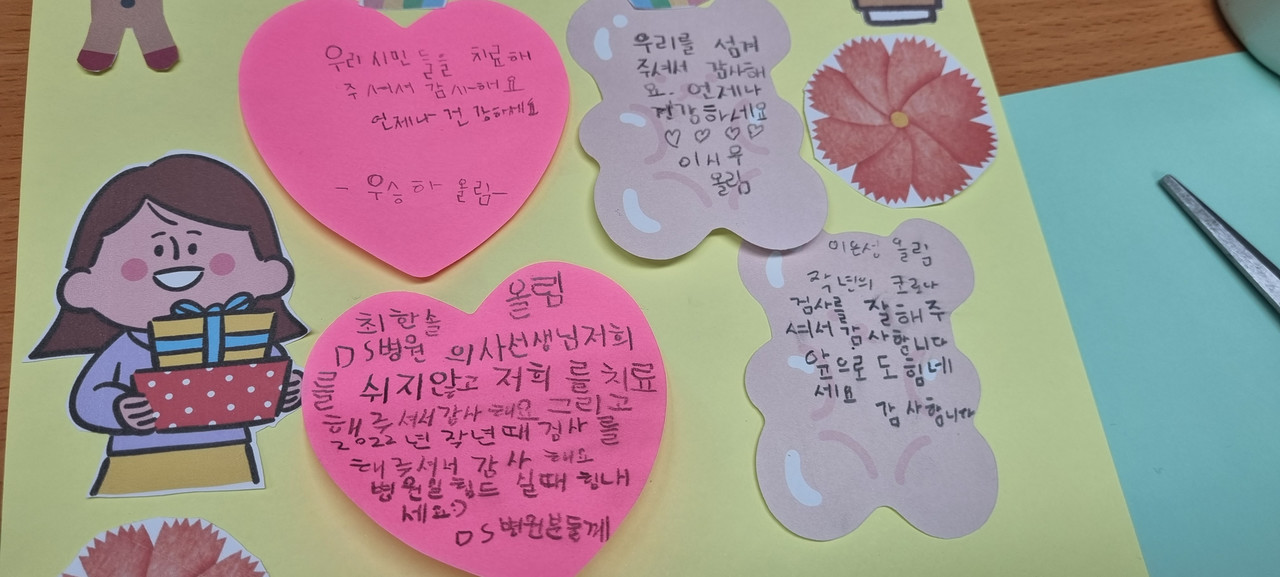 우리 시민 들을 치료해
주셔서 감사해요
언제나 건강하세요
- 우승하 올림-
우리를 섬겨
주셔서 감사해
요. 언제나
건강하세요
♡ ♡ ♡ ♡
이시우
올림
올림
최한솔
DS병원 의사선생님저희
를 쉬지않고 저희 를 치료
해주셔서감사 해요 그리고
2022년 작년때 검사를
해주셔서 감사 해요
병원일 힘드 실때 힘내
세요:)
DS병원분들께
이은성 올림
작년의 코로나
검사를 잘해주
셔서 감사합니다
앞으로도 힘네
세요
감사합니다